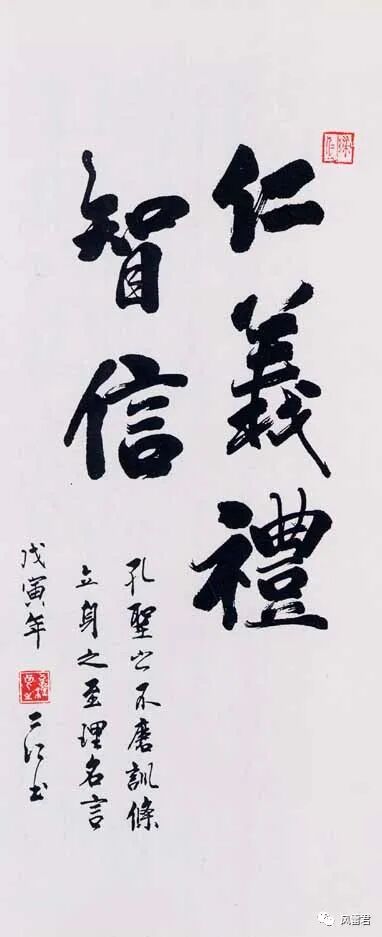 仁義禮
智信
孔聖之不磨訓條
立身之至理名言
戊寅年
书
风雷君